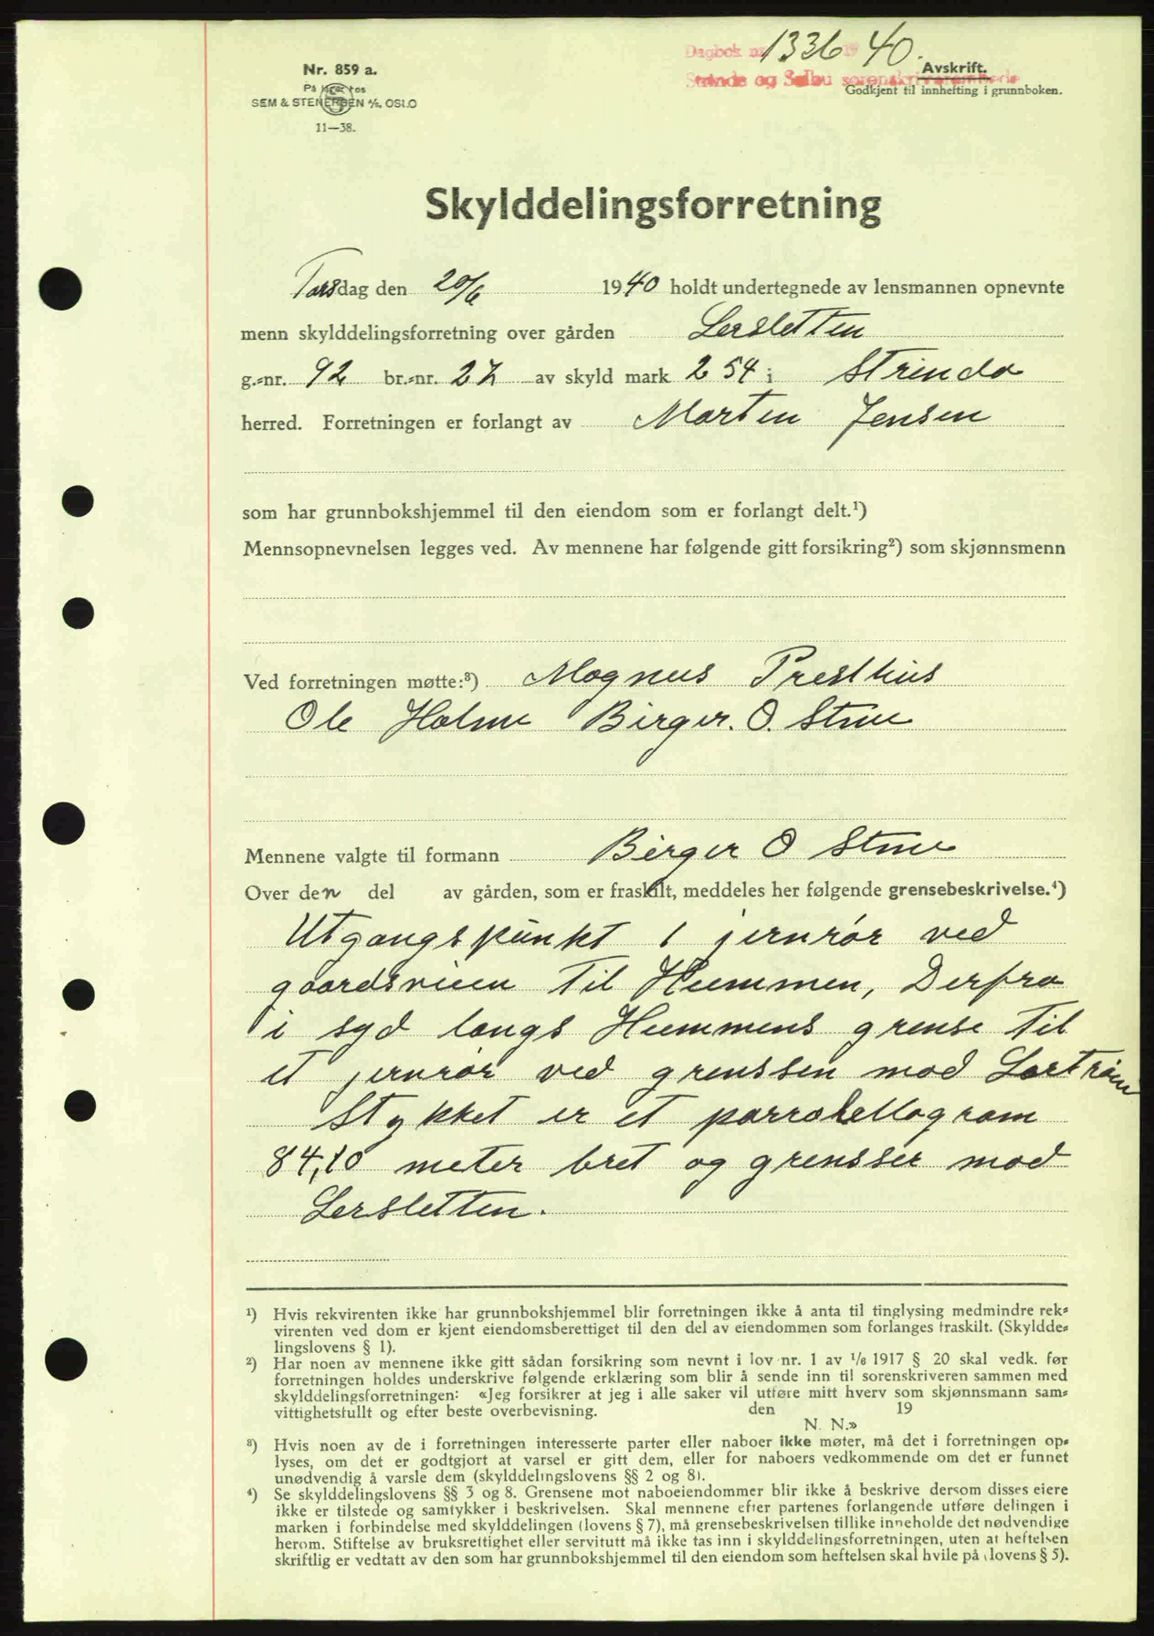 Dagbok nr. 1336 19 40.
Strinda og Selbu sorenskriverembede
Nr. 859 a.
På lager hos
SEM & STENERSEN A/S, OSLO
11—38.
Avskrift.
Godkjent til innhefting i grunnboken.
Skylddelingsforretning
Torsdag den 20/6 1940 holdt undertegnede av lensmannen opnevnte
menn skylddelingsforretning over gården Lersletten
g.-nr. 92 br.-nr. 27 av skyld mark 2 54 i Strinda
herred. Forretningen er forlangt av Morten Jensen
som har grunnbokshjemmel til den eiendom som er forlangt delt.¹)
Mennsopnevnelsen legges ved. Av mennene har følgende gitt forsikring²) som skjønnsmenn
Ved forretningen møtte:³) Magnus Presthus
Ole Holm Birger. O. Stue
Mennene valgte til formann Birger O Stue
Over den del av gården, som er fraskilt, meddeles her følgende grensebeskrivelse.⁴)
Utgangspunkt 1 jernrør ved
gaardsveien til Hummen, Derfra
i syd langs Hummens grense til
et jernrør ved grenssen mod
Stykket er et parrolellogram
84,10 meter bret og grensser mod
Lersletten.
¹) Hvis rekvirenten ikke har grunnbokshjemmel blir forretningen ikke å anta til tinglysing medmindre rek-
virenten ved dom er kjent eiendomsberettiget til den del av eiendommen som forlanges fraskilt. (Skyldde-
lingslovens § 1).
²) Har noen av mennene ikke gitt sådan forsikring som nevnt i lov nr. 1 av 1/6 1917 § 20 skal vedk. før
forretningen holdes underskrive følgende erklæring som blir å sende inn til sorenskriveren sammen med
skylddelingsforretningen: «Jeg forsikrer at jeg i alle saker vil utføre mitt hverv som skjønnsmann sam-
vittighetsfullt og efter beste overbevisning. den 19
N. N.»
³) Hvis noen av de i forretningen interesserte parter eller naboer ikke møter, må det i forretningen op-
lyses, om det er godtgjort at varsel er gitt dem, eller for naboers vedkommende om det er funnet
unødvendig å varsle dem (skylddelingslovens §§ 2 og 8).
⁴) Se skylddelingslovens §§ 3 og 8. Grensene mot naboeiendommer blir ikke å beskrive dersom disses eiere
ikke er tilstede og samtykker i beskrivelsen. Skal mennene efter partenes forlangende utføre delingen i
marken i forbindelse med skylddelingen (lovens § 7), må grensebeskrivelsen tillike inneholde det nødvendige
herom. Stiftelse av bruksrettighet eller servitutt må ikke tas inn i skylddelingsforretningen, uten at heftelsen
skriftlig er vedtatt av den som har grunnbokshjemmel til den eiendom som heftelsen skal hvile på (lovens § 5).